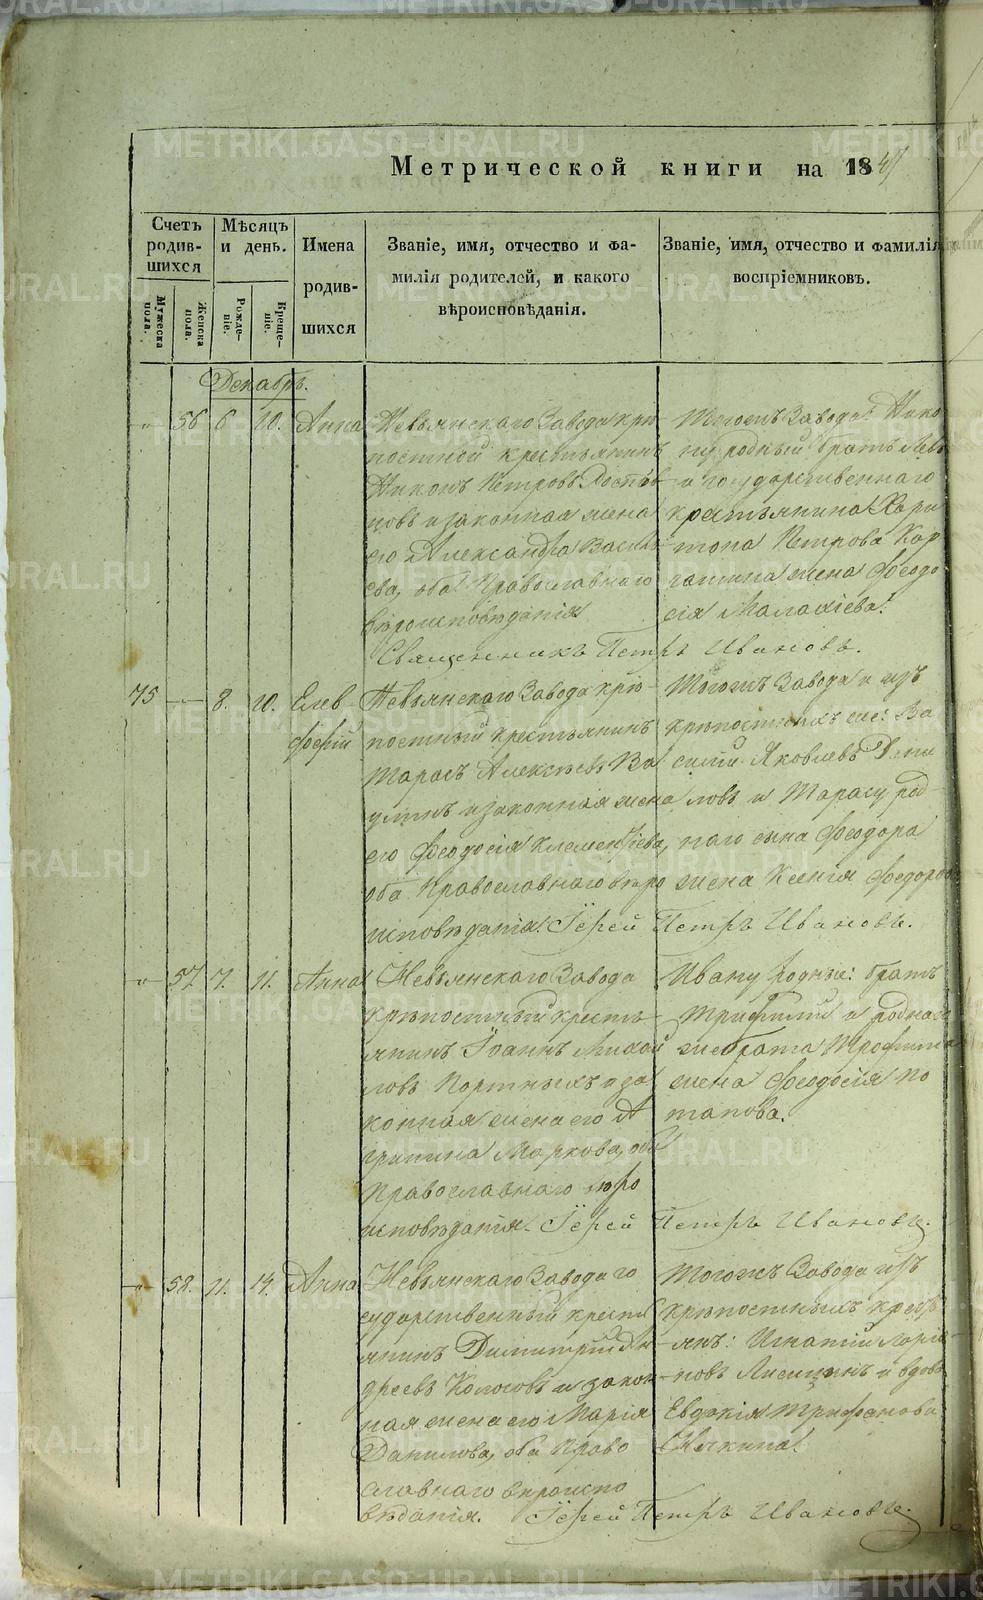 METRIKI.GASO-URAL.RU
Метрической книги на 1847
Счетъ родившихся
Мѣсяцъ и день.
Имена родившихся
Званіе, имя, отчество и фамилія родителей, и какого вѣроисповѣданія.
Званіе, имя, отчество и фамилія воспріемниковъ.
Мужеска пола.
Женска пола.
Рожденіе.
Крещеніе.
Декабрь.
56 6 10. Анна
Невьянскаго Завода крѣ
постной крестьянинъ
Никонъ Петровъ
новъ и законная жена
его Александра Василь
ева, оба Православнаго
вѣроисповѣданія
Тогожъ Завода: Нико
ну родный братъ
и государственнаго
крестьянина Хари
тона Петрова Кор
жена Феодо
сія Малахіева.
Священникъ Петръ Ивановъ.
75 8. 10. Елев
ферій
Невьянскаго Завода крѣ
постный крестьянинъ
Тарасъ Алексѣевъ Ва
и законная жена
его Феодосія Клементіева,
оба Православнаго вѣро
исповѣданія. Іерей Петръ Ивановъ.
Тогожъ Завода изъ
крѣпостныхъ же: Ва
силій Яковлевъ Дани
ловъ и Тарасу род
наго сына Феодора
жена Ксенія Федорова
57. 7. 11. Анна
Невьянскаго Завода
крѣпостный кресть
янинъ Іоаннъ Михай
ловъ Портныхъ и за
конная жена его А
грипина Маркова, оба
Православнаго вѣро
исповѣданія. Іерей Петръ Ивановъ.
Ивану родные: братъ
Трифилій и роднаго
же брата Трофима
жена Феодосія По
тапова.
58. 11. 14. Анна
Невьянскаго Завода го
сударственный кресть
янинъ Димитрій Ан
дреевъ Кологовъ и закон
ная жена его Марія
Данилова, оба Право
славнаго вѣроиспо
вѣданія. Іерей Петръ Ивановъ.
Тогожъ Завода изъ
крѣпостныхъ кресть
янъ: Игнатій Ларіо
новъ Лисицинъ и вдова
Евдокія Трифонова